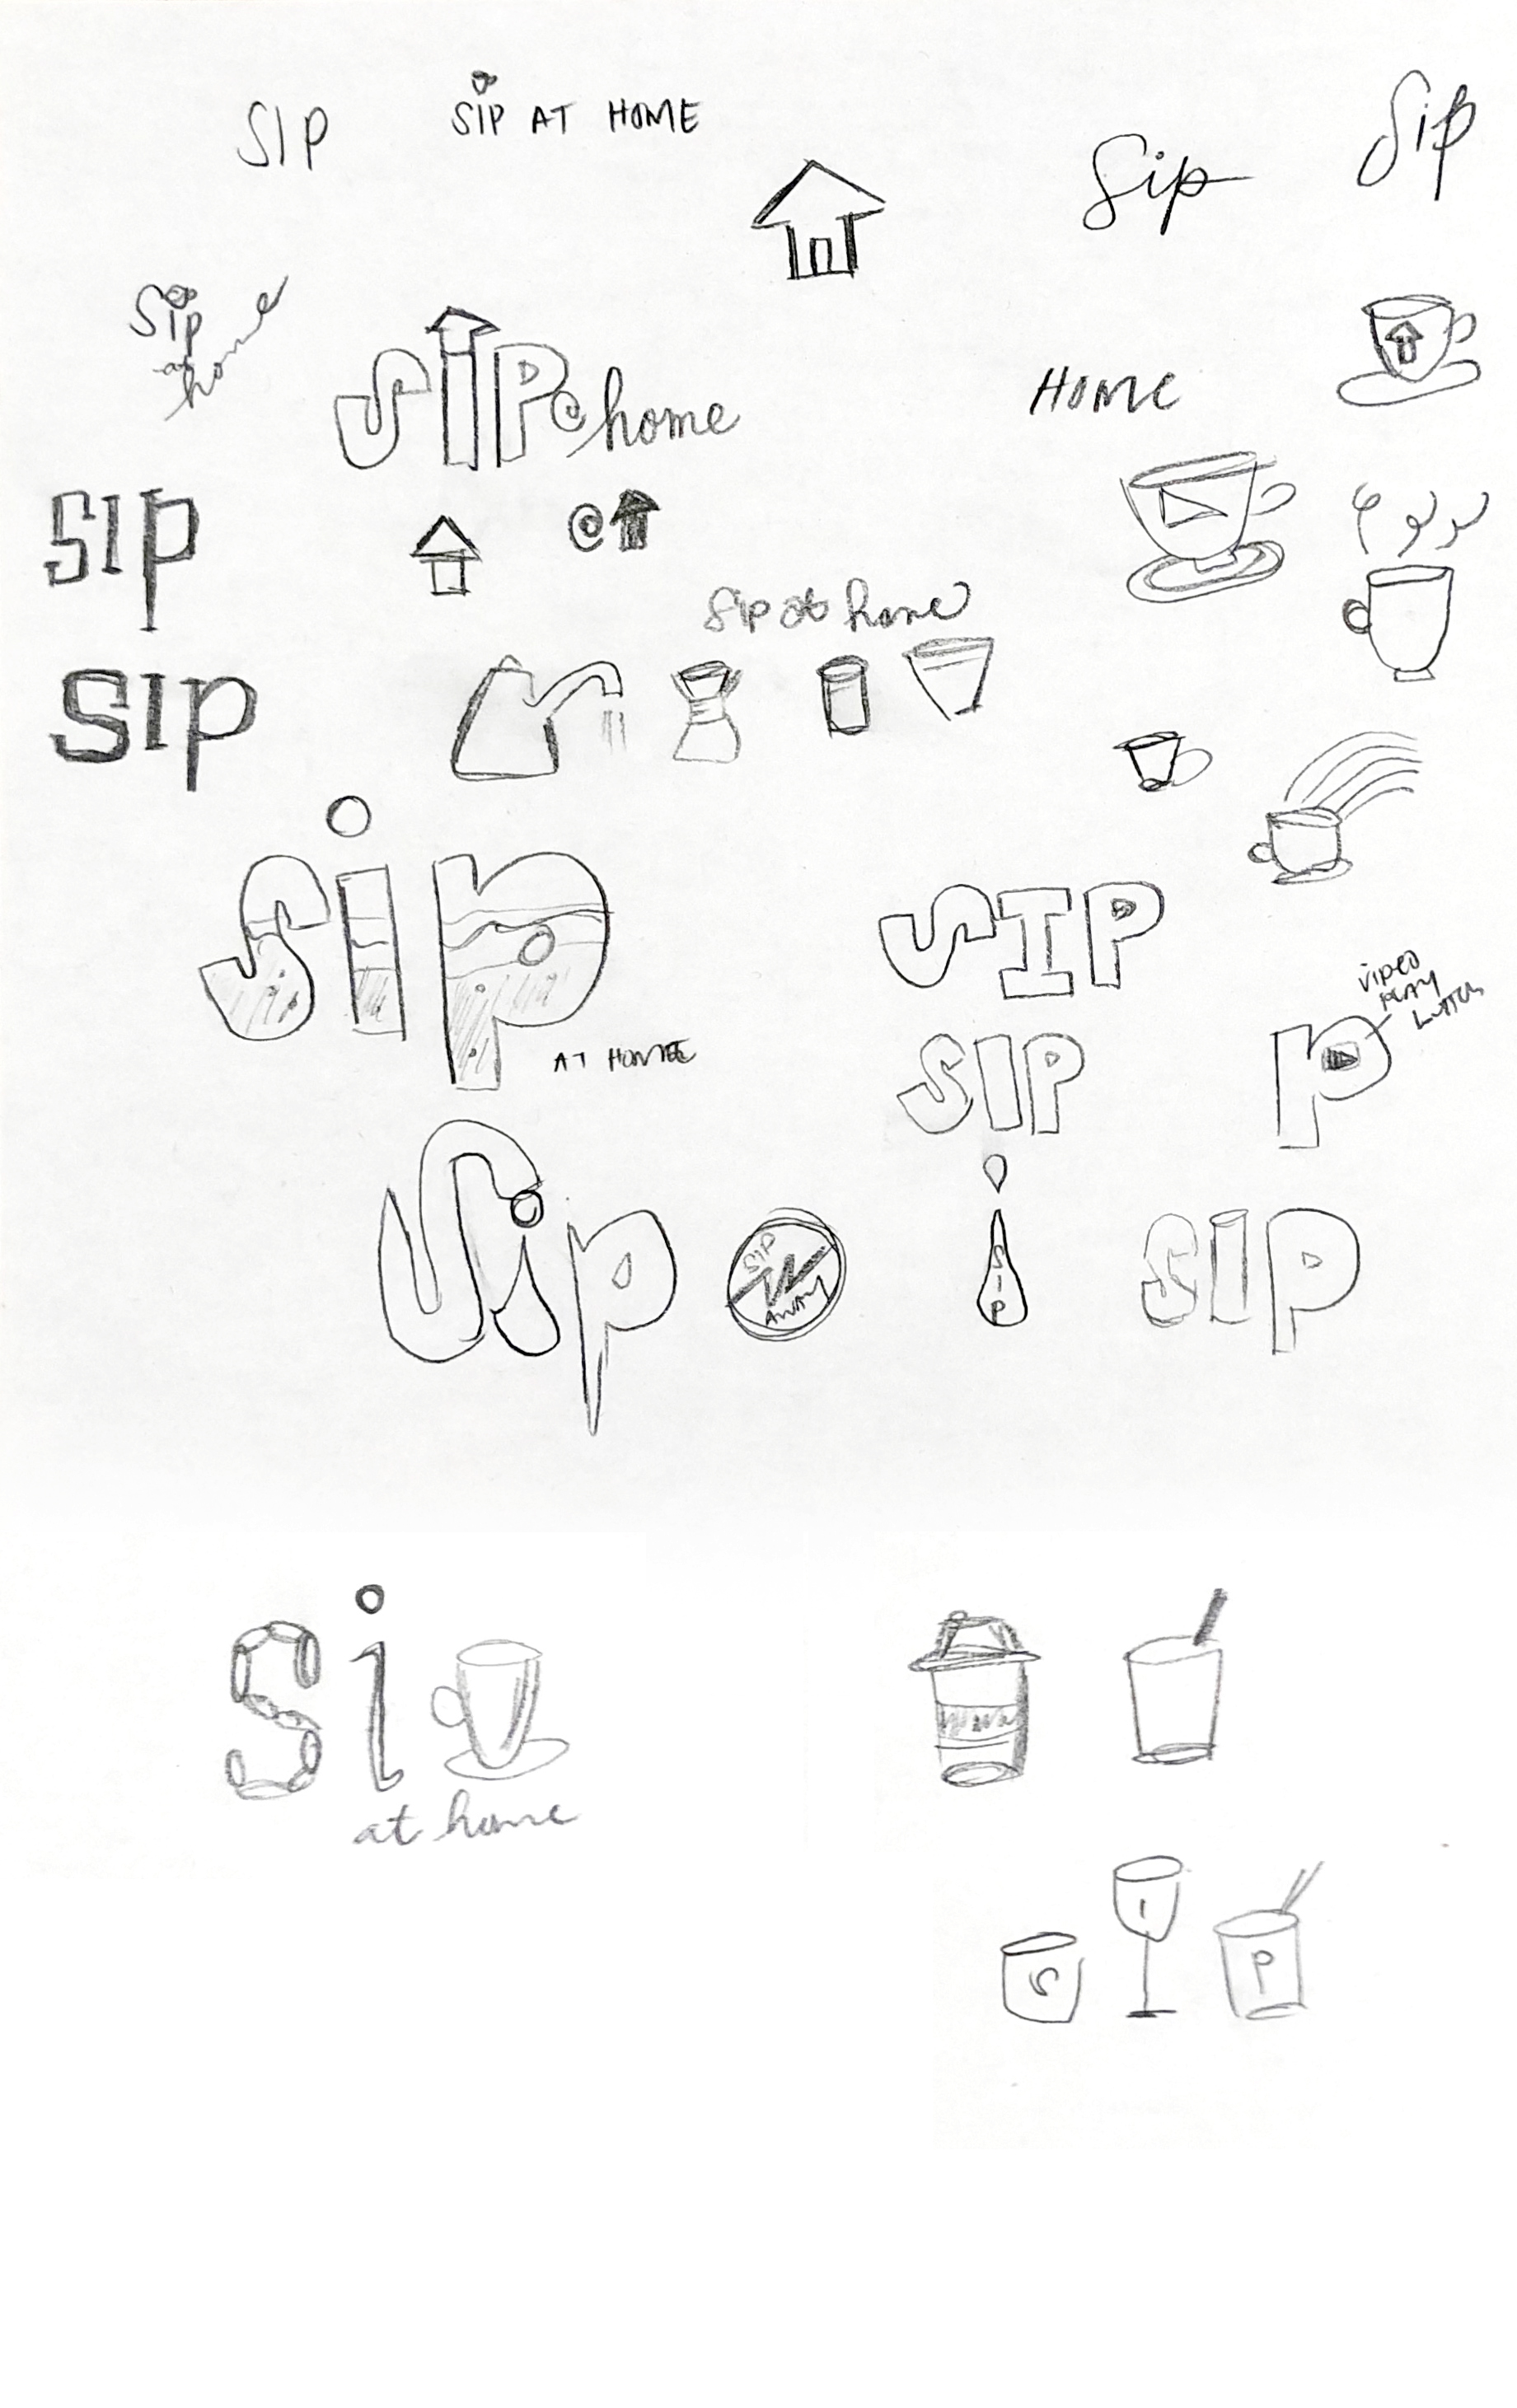 SIP
SIP AT HOME
Sip
Sip
Sip
at
home
SIP@home
HOME
SIP
@
Sip at home
SIP
sip
AT HOME
SIP
VIDEO
PLAY
BUTTON
P
SIP
Sip
SIP
AWAY
S
I
P
SIP
Si
at home
S I P